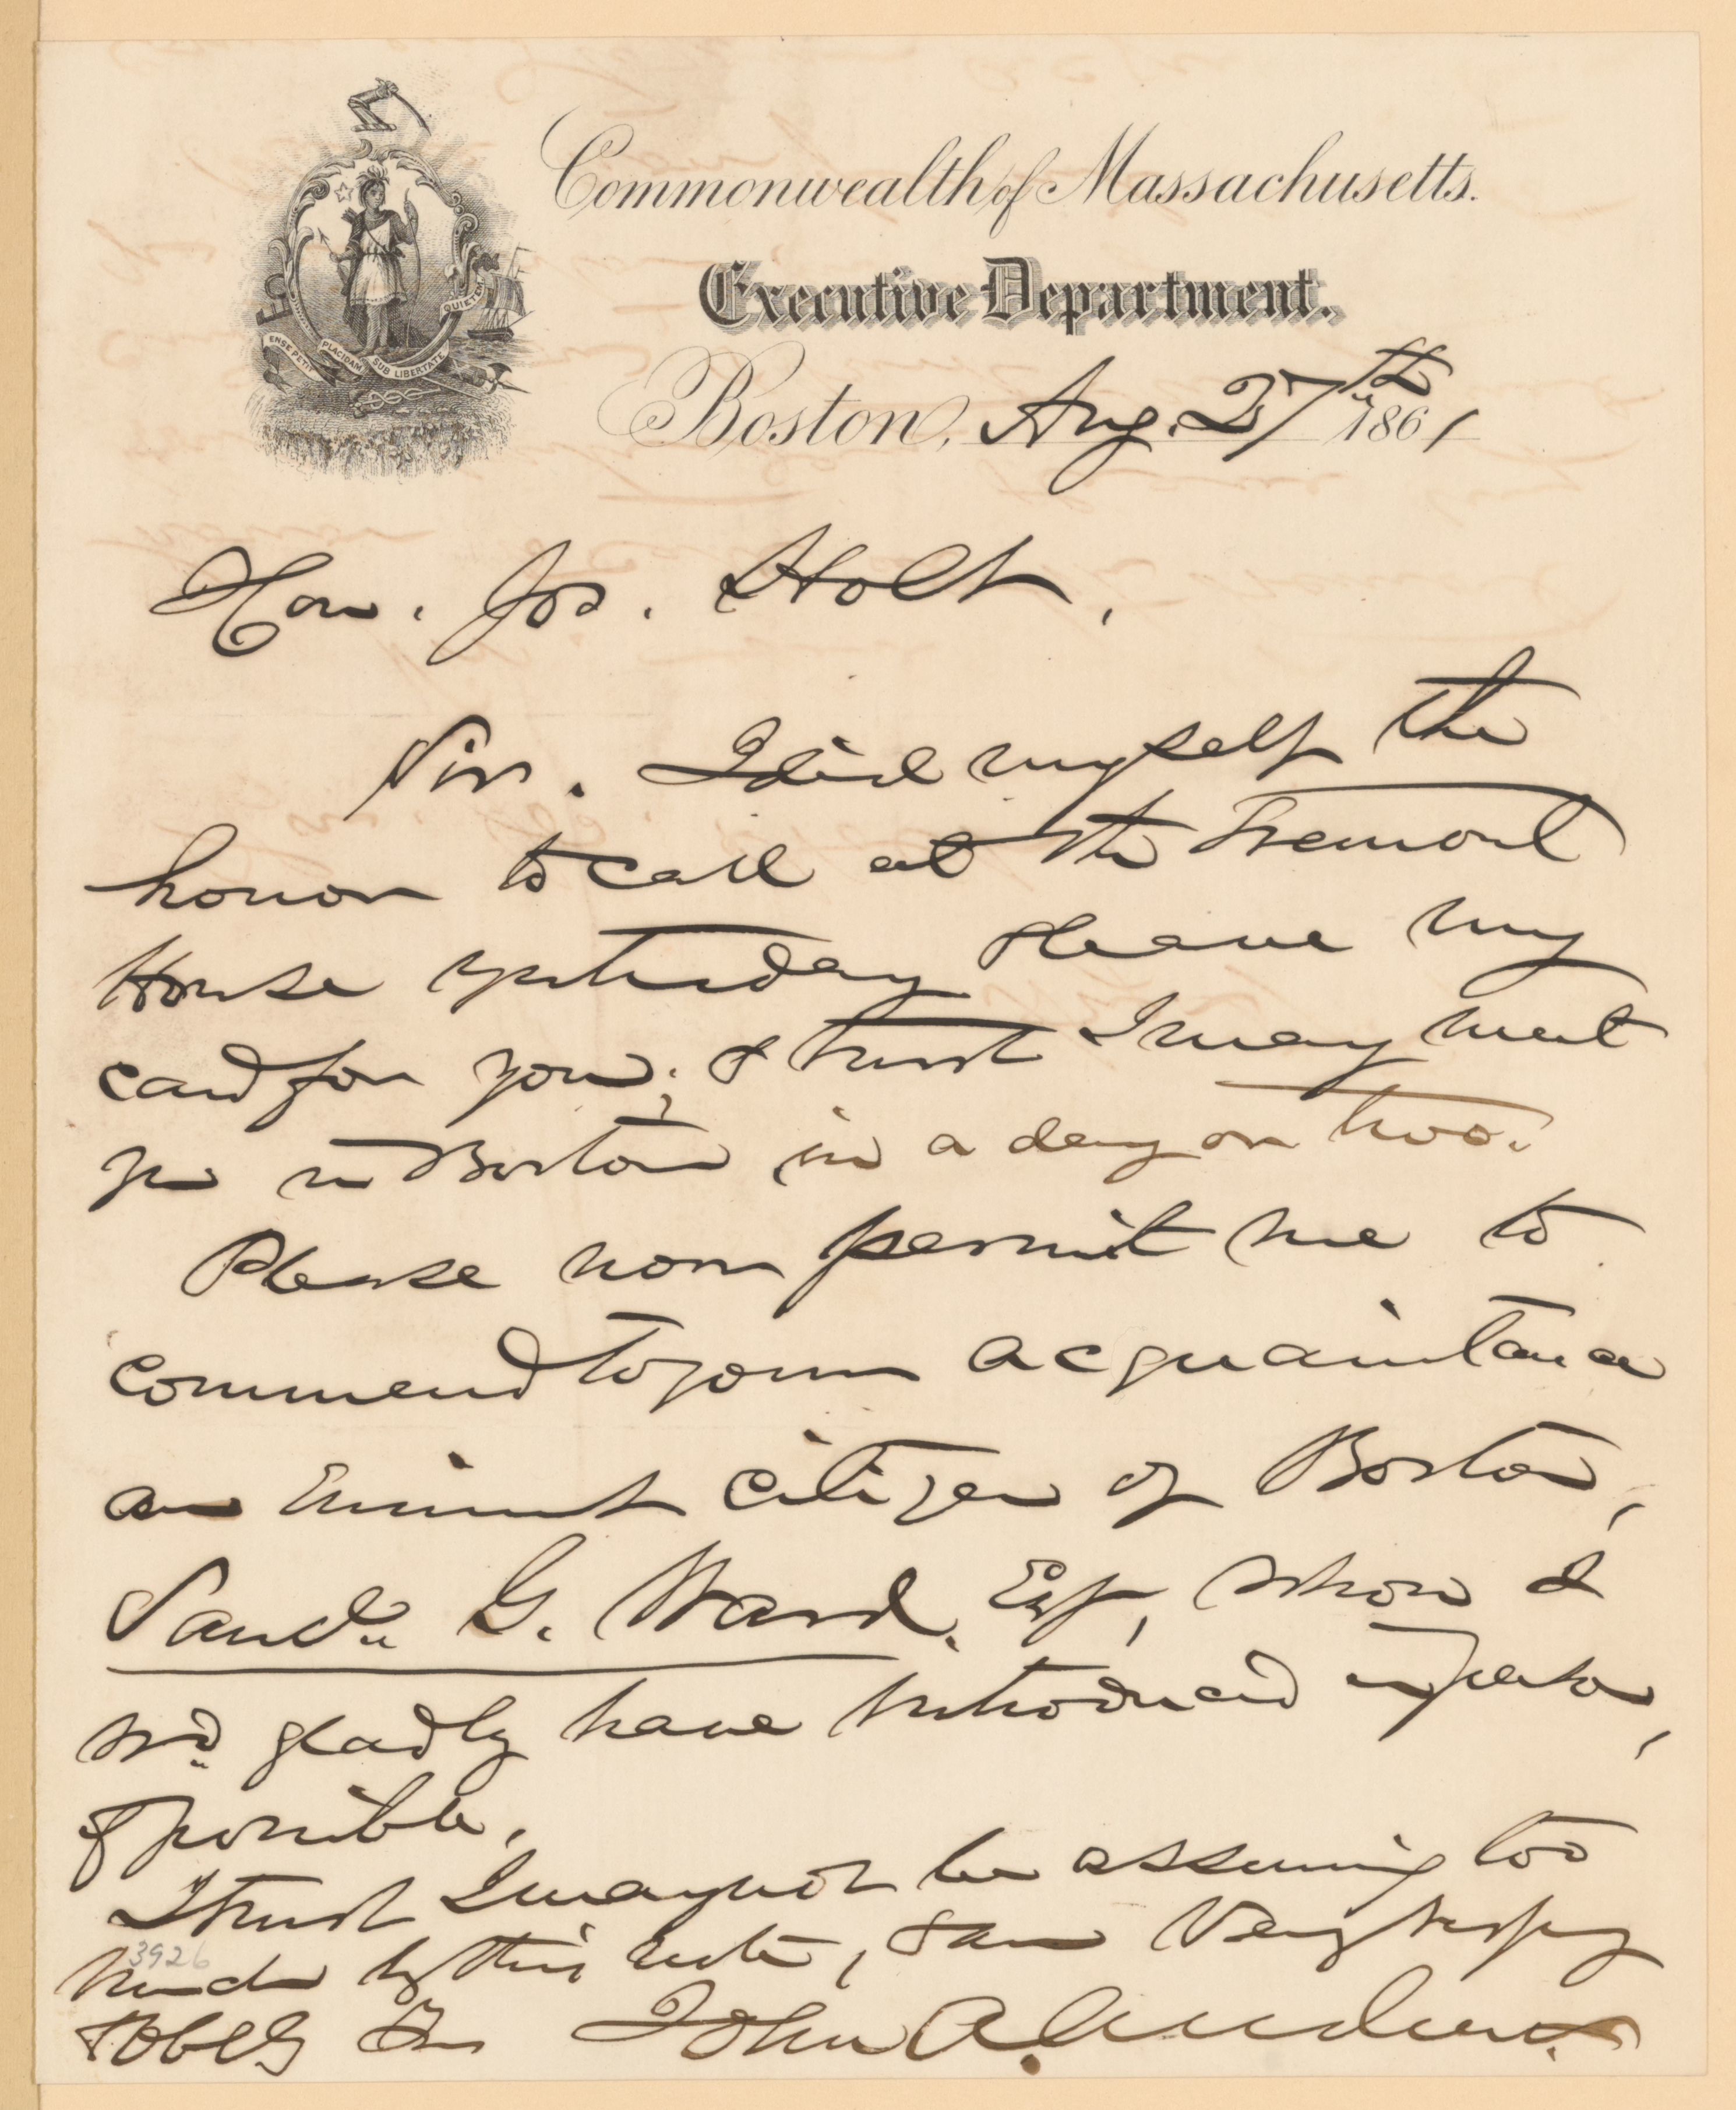 Commonwealth of Massachusetts.
Executive Department.
ENSE PETIT PLACIDAM SUB LIBERTATE QUIETEM
Boston, Aug. 27th 1861
Hon. Jos. Holt,
Sir. I did myself the
honor to call at the Tremont
House yesterday & leave my
card for you; & trust I may meet
you in Boston in a day or two.
Please now permit me to
commend to your acquaintance
an eminent citizen of Boston,
Saml. G. Ward. Esq, whom I
wd. gladly have introduced in person,
if possible.
I trust I may not be assuming too
much by this note, & am Very respy
& obly Yrs John A. Andrew.
3926